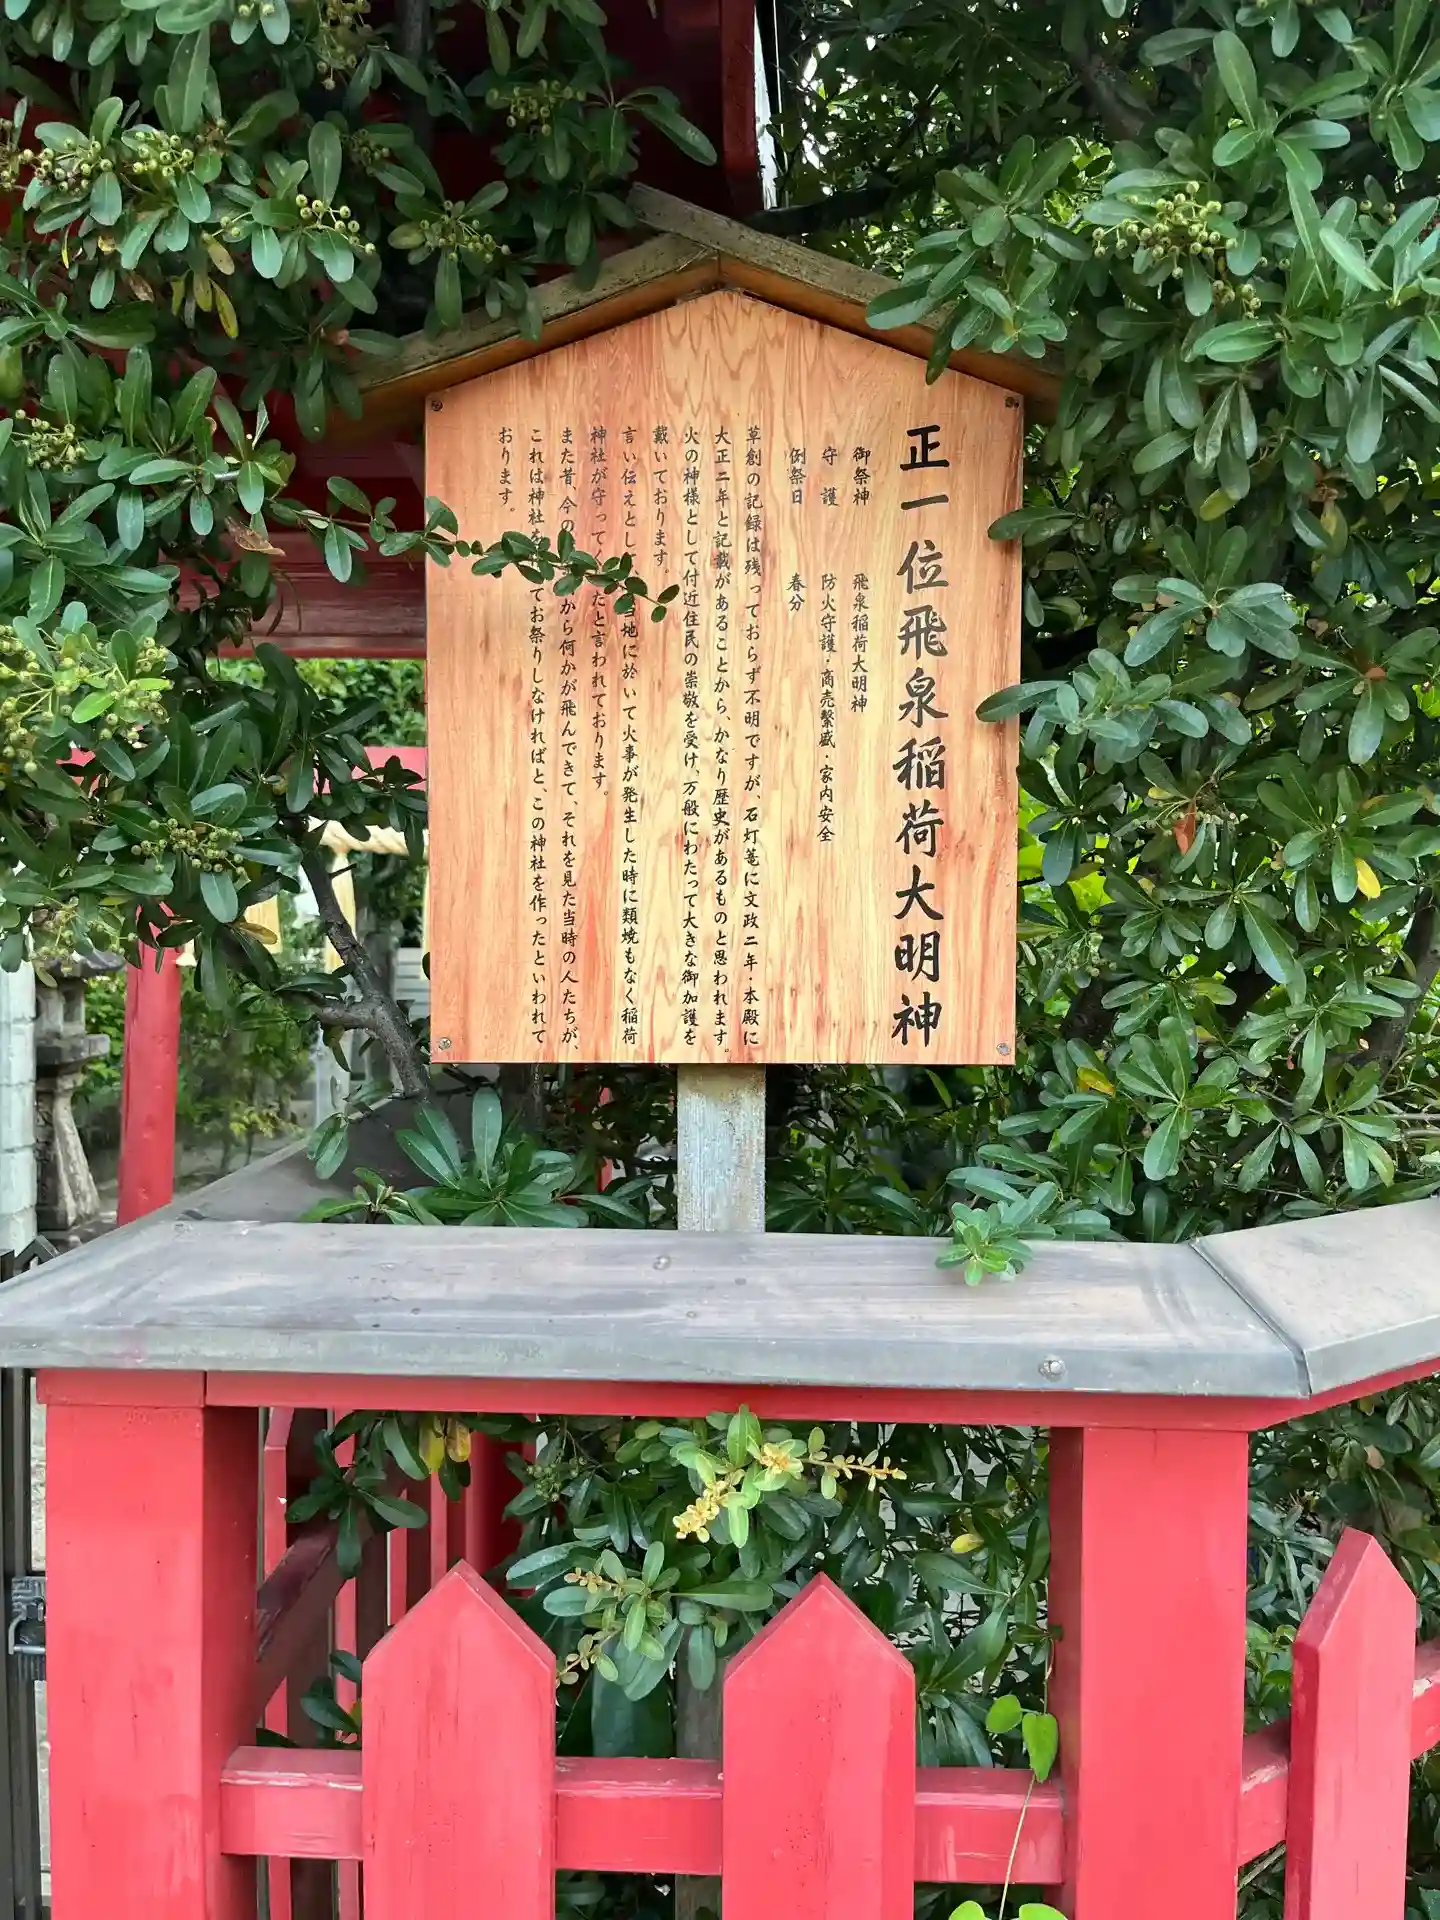 正一位飛泉稲荷大明神
御祭神 飛泉稲荷大明神
守護 防火守護・商売繫盛・家内安全
例祭日 春分
草創の記録は残っておらず不明ですが、石灯篭に文政二年・本殿に
大正二年と記載があることから、かなり歴史があるものと思われます。
火の神様として付近住民の崇敬を受け、万般にわたって大きな御加護を
戴いております。
言い伝えとして、当地に於いて火事が発生した時に類焼もなく稲荷
神社が守ってくれたと言われております。
また昔、今の から何かが飛んできて、それを見た当時の人たちが、
これは神社を てお祭りしなければと、この神社を作ったといわれて
おります。